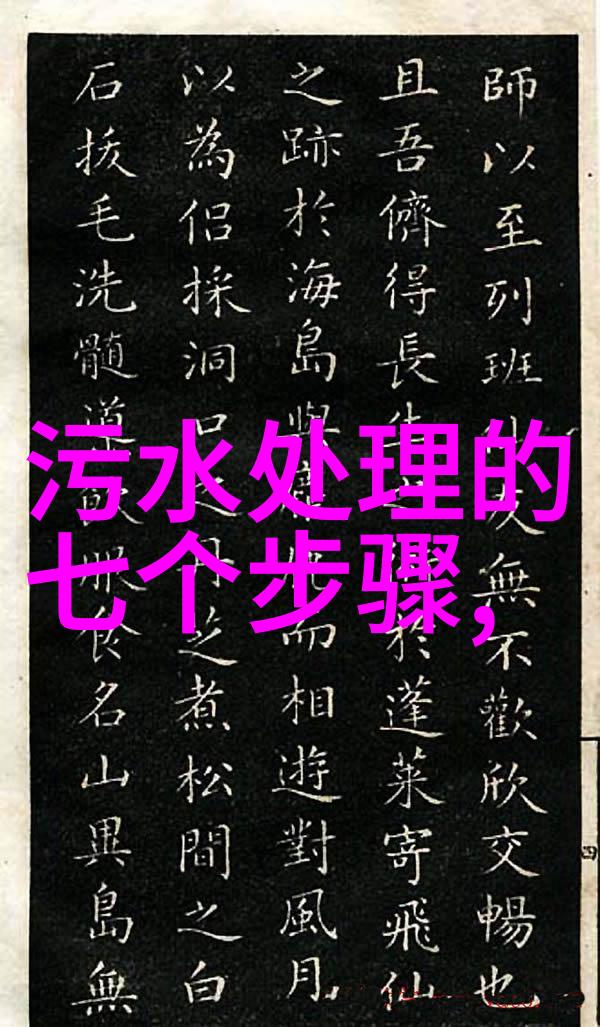 師以至列班仙友無不歡欣交暢也
且吾儕得長生之於蓬萊寄飛仙
之跡於海島與而相遊對風月
以為侶採洞口之丹芝煮松間之白
石拔毛洗髓導服食名山異島無
污水处理的
七个步骤,
四